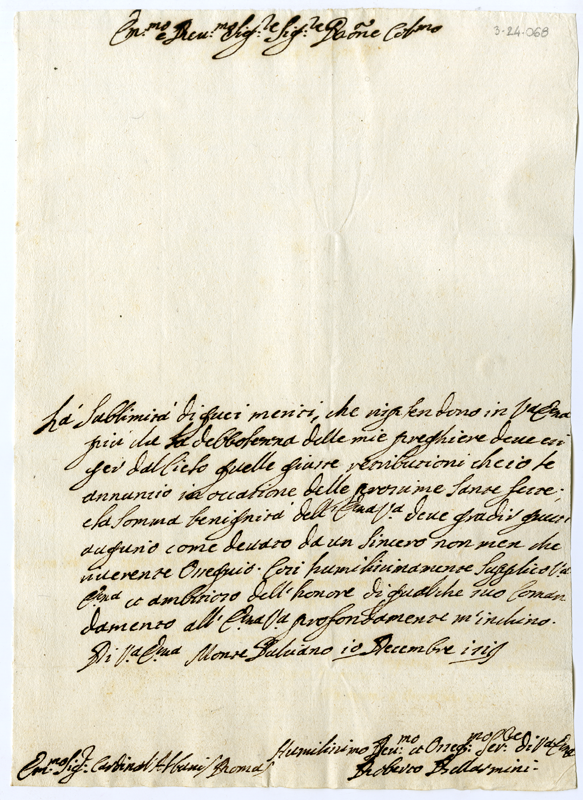 Em.mo e Reu.mo Sig.re Sig.re Pañe Col.mo
3-24-068
La Sublimità di quei meriti, che risplendono in V.a Em.a
più che la debbolezza delle mie preghiere deue esi
ger dal Cielo quelle giuste retribuzioni che io le
annunzio in occasione delle prossime Sante feste;
e la somma benignità dell' Em.a V.a deue gradir questo
augurio come dettato da un sincero non men che
riuerente Ossequio. Così humilissimamente supplico V.a
Em.a et ambizioso dell' honore di qualche suo Coman
damento all' Em.a V.a profondamente m'inchino.
Di V.a Em.a Monte Pulciano 10 Decembre
Humilissimo Deu.mo et Osseq.mo Ser.re Di V.a Em.a
Em.mo Sig.r Cardinal Albani Roma
Roberto Bellarmini